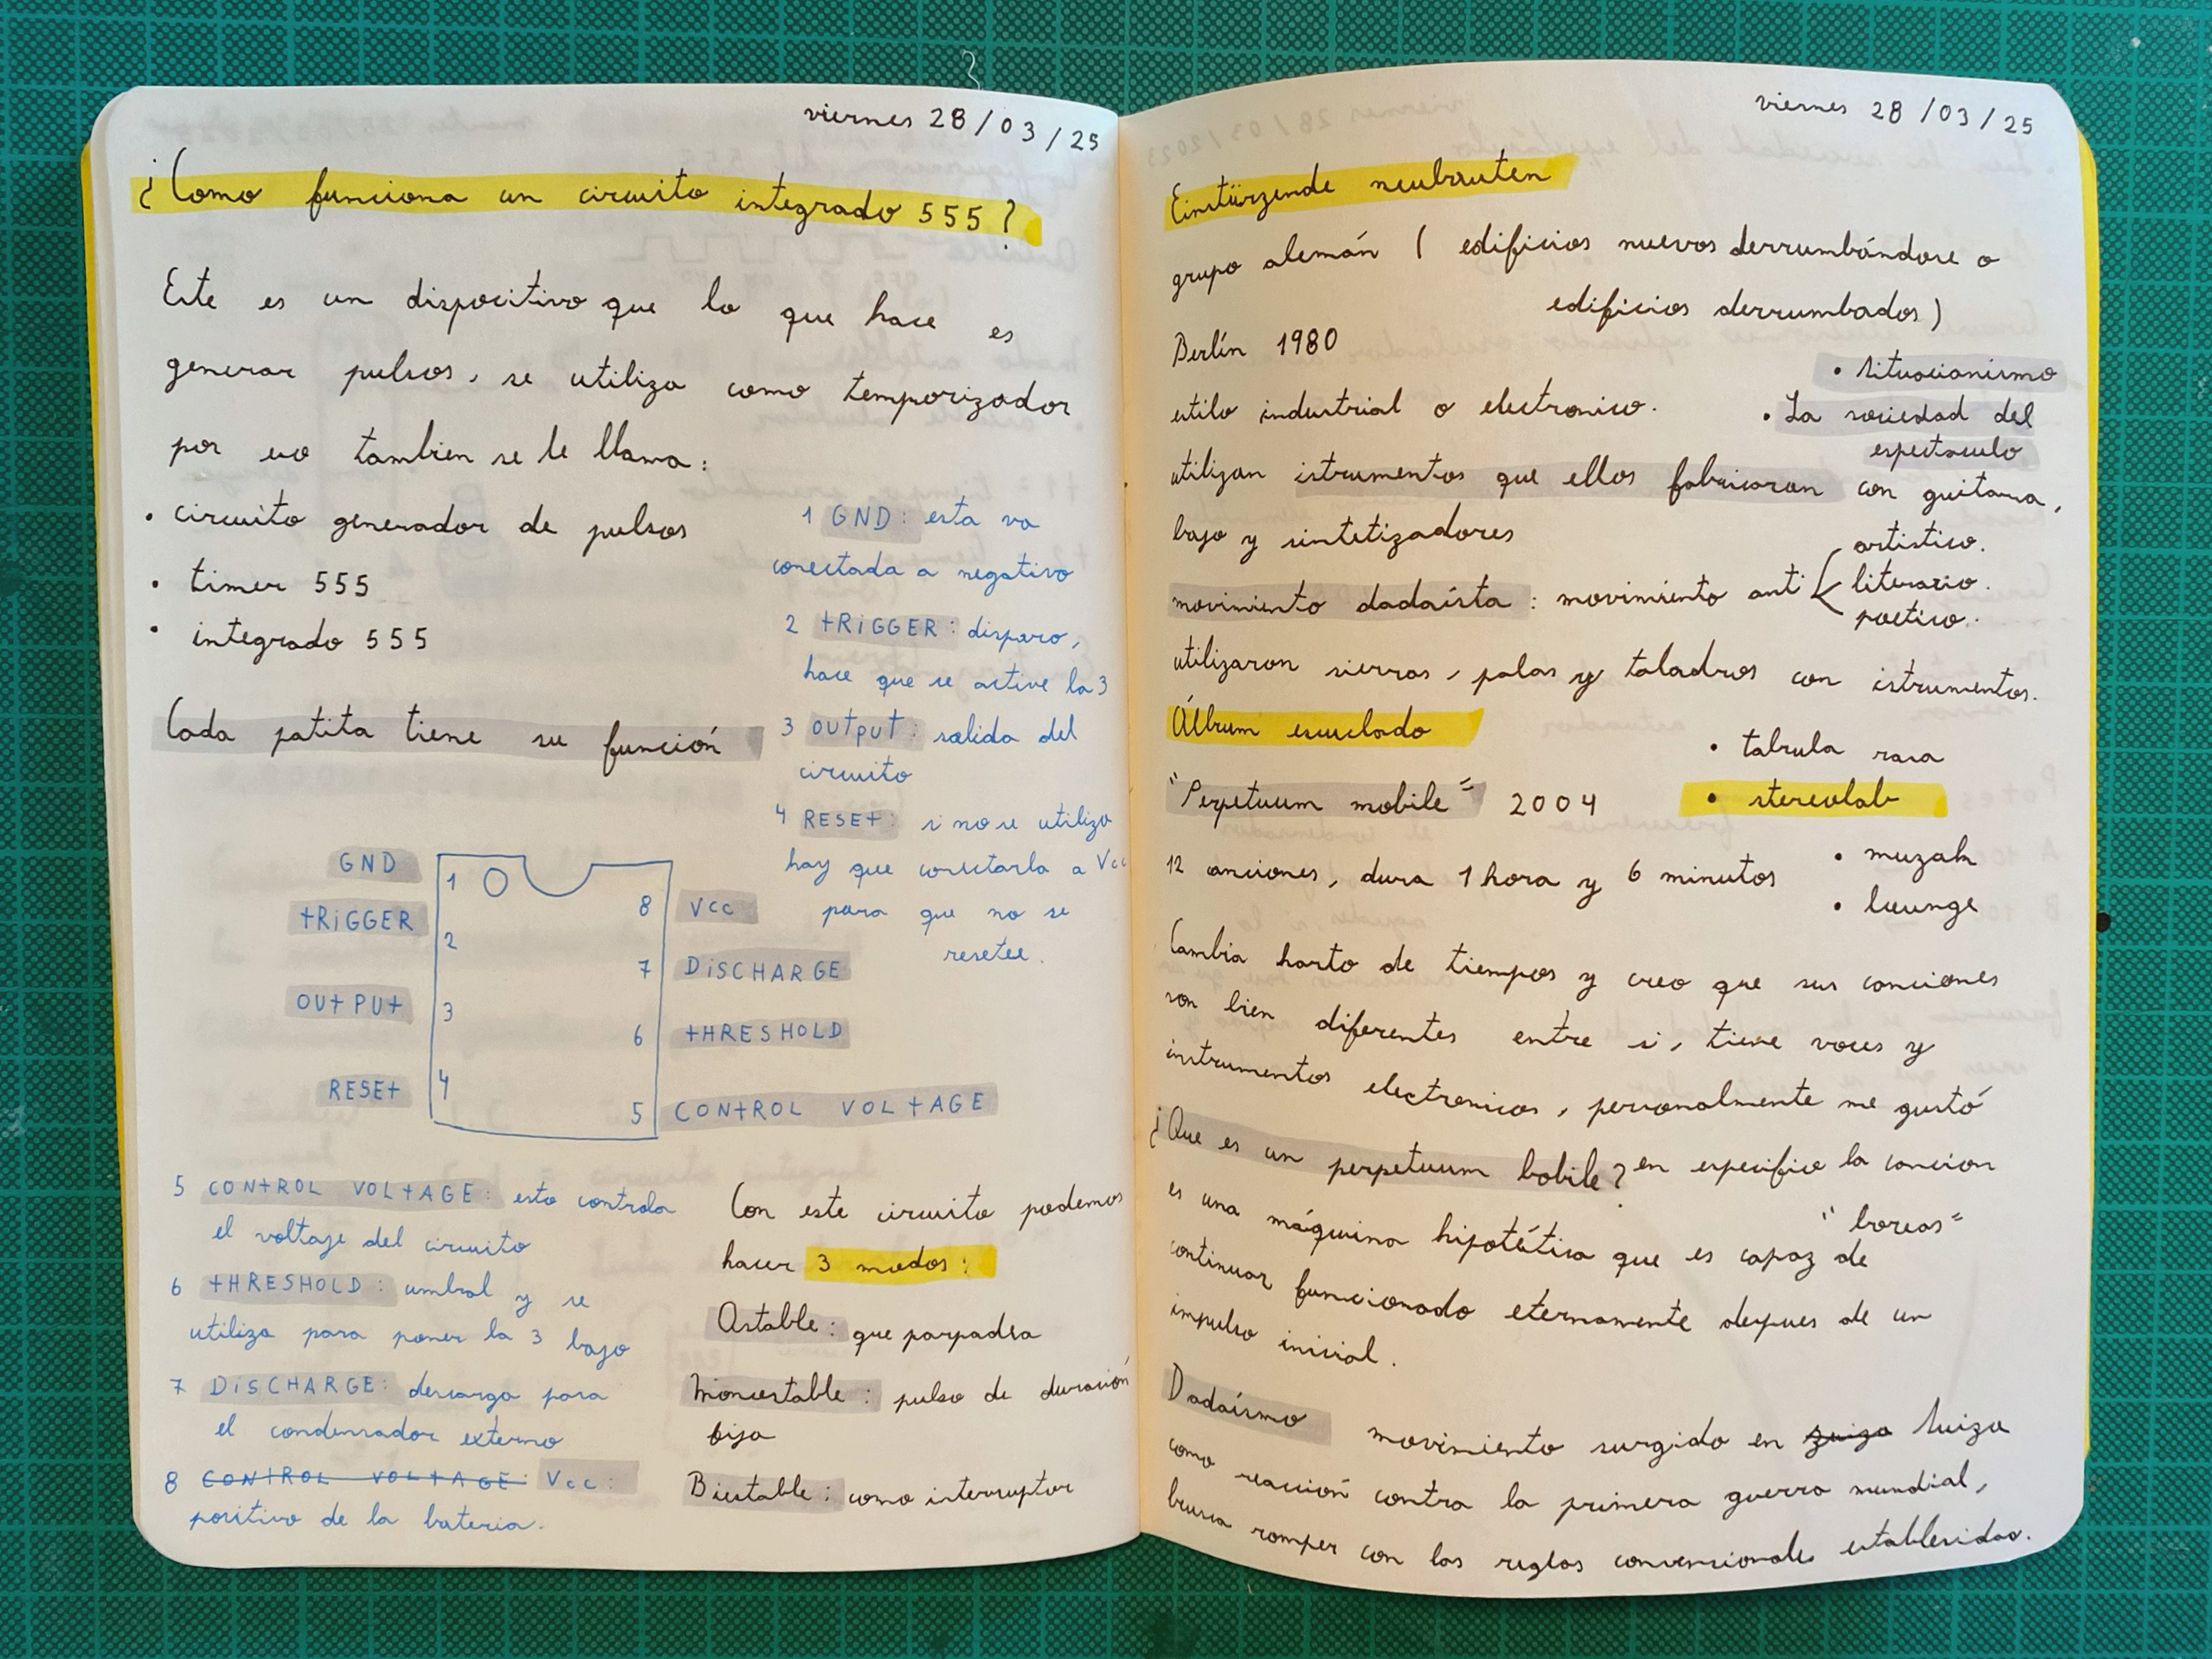 viernes 28/03/25
¿Como funciona un circuito integrado 555?
Este es un dispositivo que lo que hace es
generar pulsos, se utiliza como temporizador
por eso tambien se le llama:
• circuito generador de pulsos
• timer 555
• integrado 555
Cada patita tiene su función
1 GND: esta va
conectada a negativo
2 tRiGGER: disparo,
hace que se active la 3
3 OUtPUt: salida del
circuito
4 RESEt: si no se utiliza
hay que conectarla a Vcc
para que no se
resetee.
GND
tRiGGER
OUtPUt
RESEt
1
2
3
4
8
7
6
5
Vcc
DiSCHARGE
tHRESHOLD
CONtROL VOLtAGE
5 CONtROL VOLtAGE: esta controla
el voltaje del circuito
6 tHRESHOLD: umbral y se
utiliza para poner la 3 bajo
7 DiSCHARGE: descarga para
el condensador externo
8 CONtROL VOLtAGE: Vcc:
positivo de la bateria.
Con este circuito podemos
hacer 3 modos:
Astable: que parpadea
Monoestable: pulso de duración
fija
Biestable: como interruptor
viernes 28/03/25
Einstürzende neubauten
grupo alemán ( edificios nuevos derrumbándose o
edificios derrumbados)
Berlín 1980
estilo industrial o electronico.
• situacionismo
• La sociedad del
espectaculo
utilizan istrumentos que ellos fabricaron con guitarra,
bajo y sintetizadores
movimiento dadaísta: movimiento anti
artistico.
literario.
poetico.
utilizaron sierras, palas y taladros con istrumentos.
Álbum escuchado
• tabula rasa
• stereolab
• muzak
• lounge
"Perpetuum mobile" 2004
12 canciones, dura 1 hora y 6 minutos
Cambia harto de tiempos y creo que sus canciones
son bien diferentes entre si, tiene voces y
instrumentos electronicos, personalmente me gustó
en especifico la cancion
"boreas"
¿Que es un perpetuum bobile?
es una máquina hipotética que es capaz de
continuar funcionado eternamente despues de un
impulso inicial.
Dadaísmo movimiento surgido en zuiza Suiza
como reacción contra la primera guerra mundial,
busca romper con las reglas convencionales establesidas.